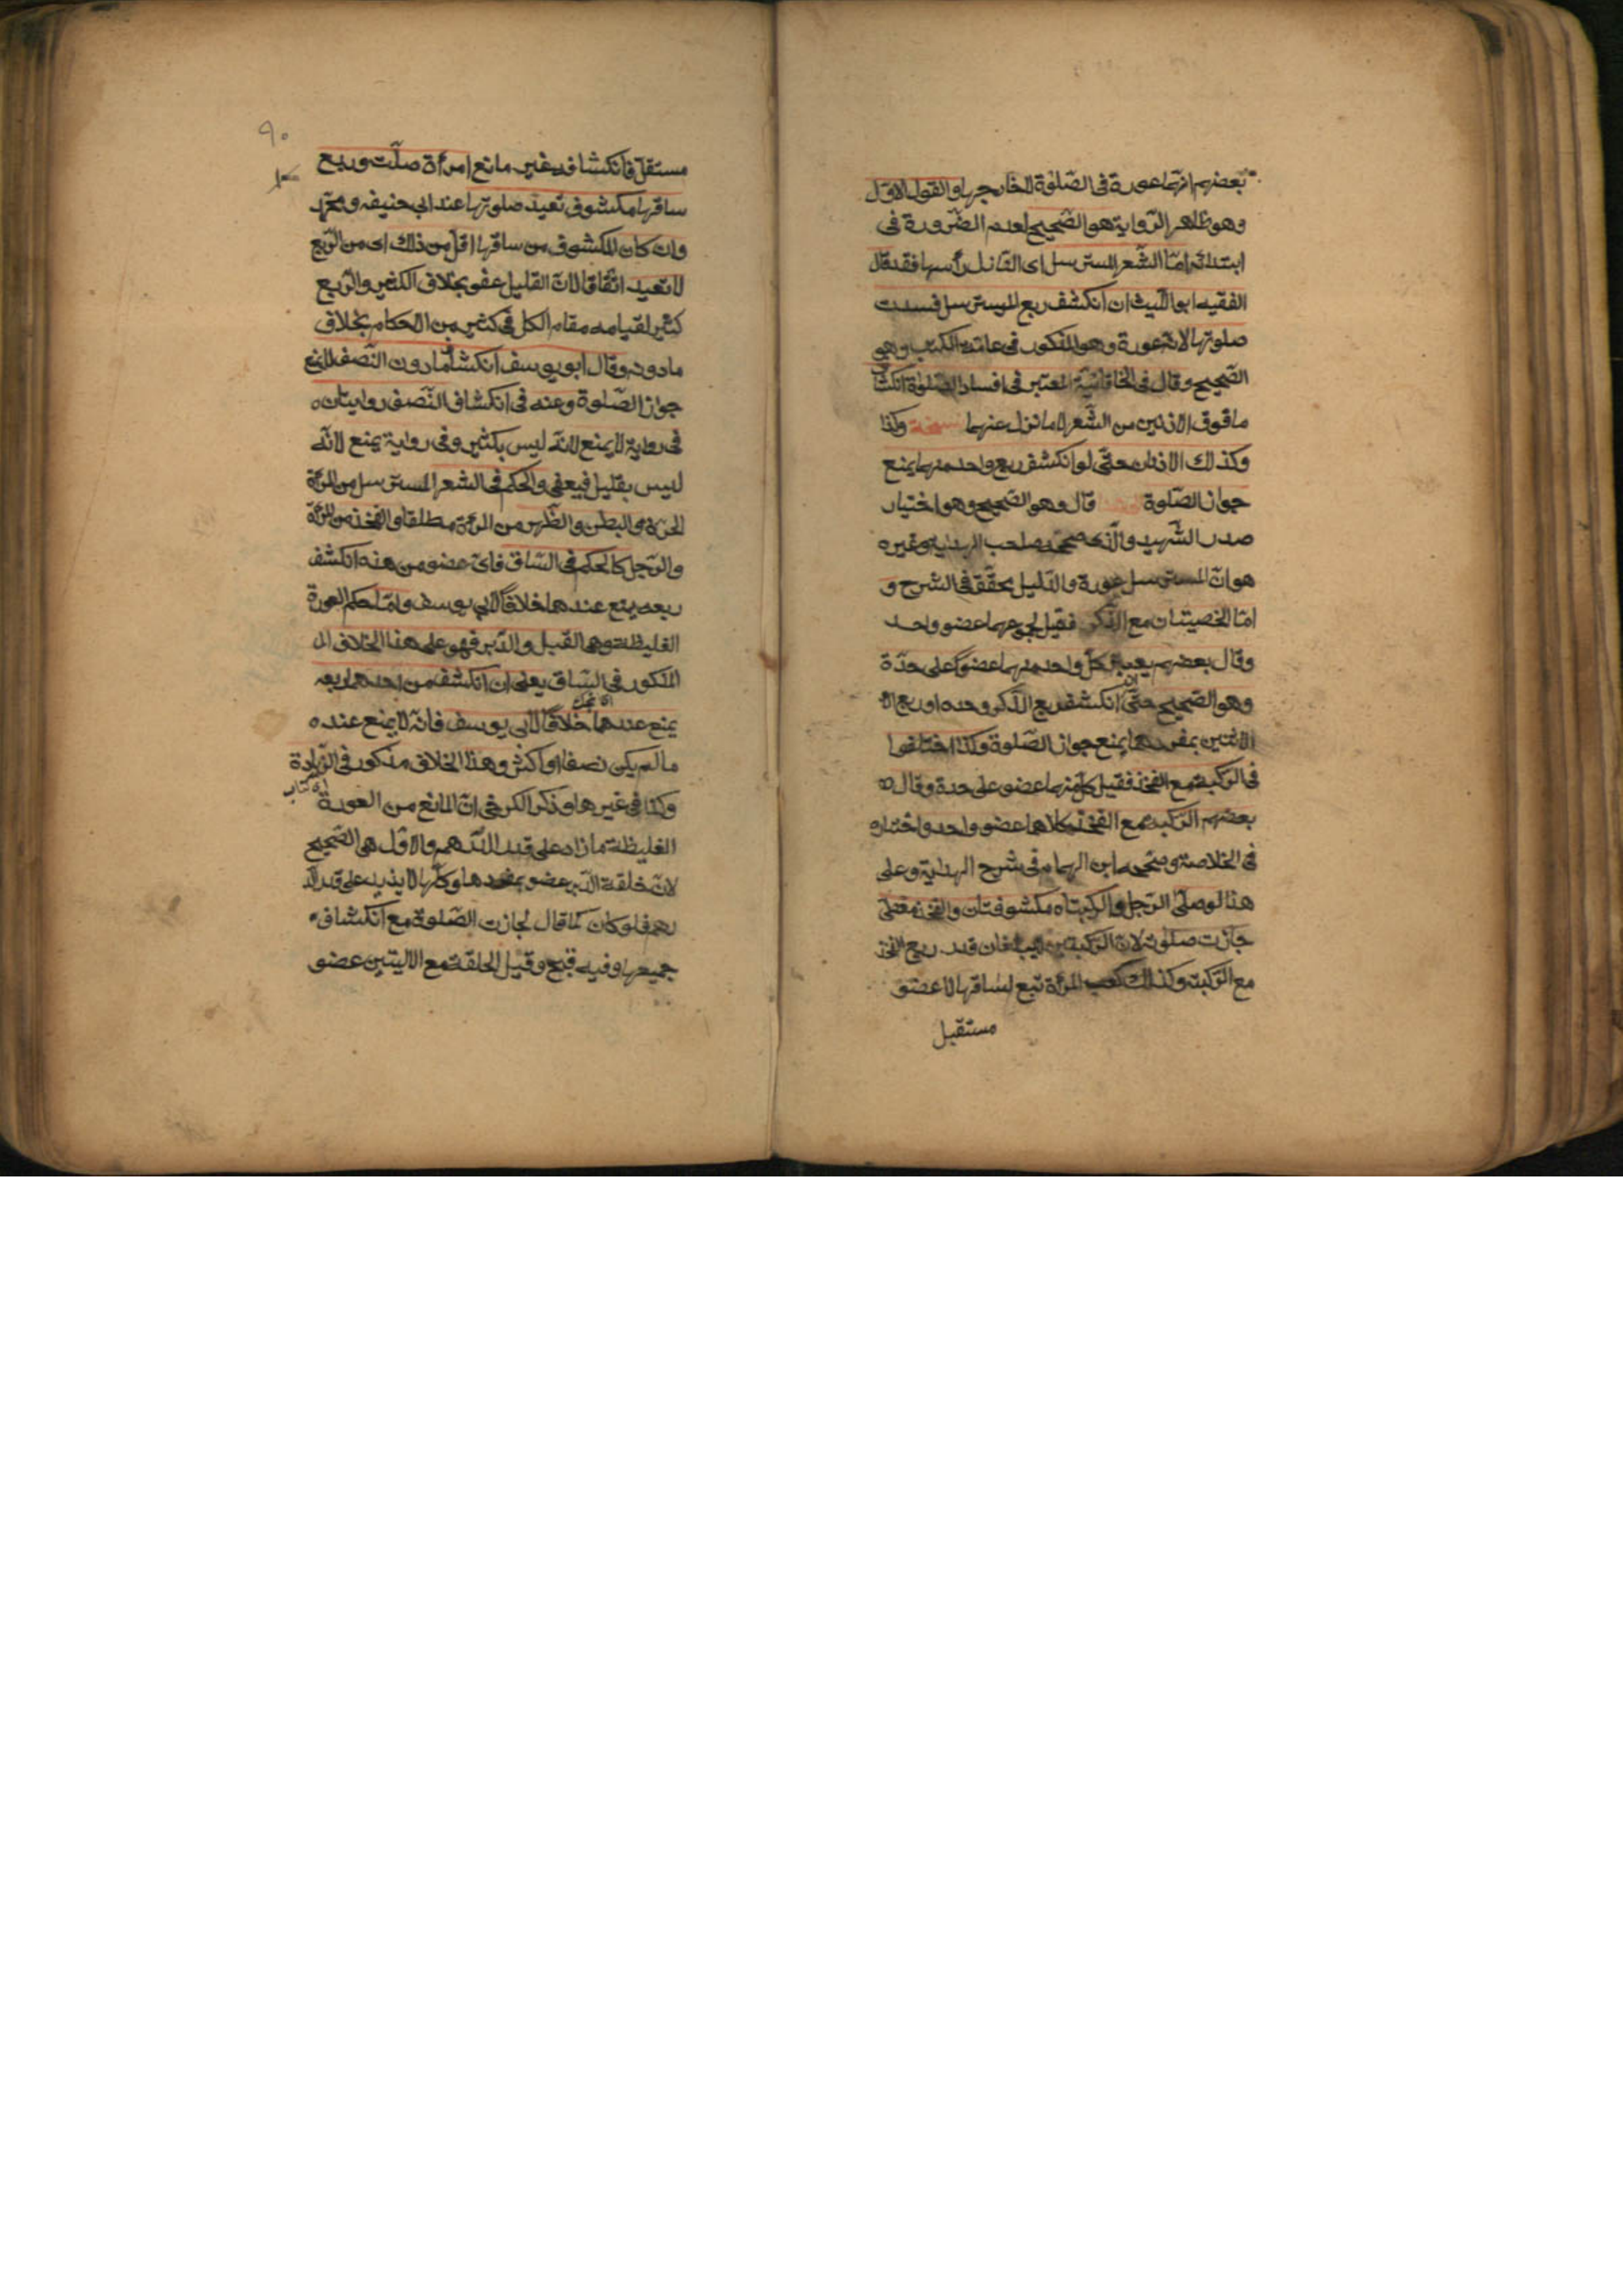 بعضهم انها عورة فى الصّلوة لا خارجها والقول الاوّل
وهو ظاهر الرّواية هو الصّحيح لعدم الضّرورة فى
ابتدائه امّا الشّعر المسترسل اى النّازل رأسها فقد قال
الفقيه ابو اللّيث ان انكشف ربع المسترسل فسدت
صلوتها لانه عورة وهو المذكور فى عامّة الكتب وهو
الصّحيح وقال فى الخاقانيّة المعتبر فى افساد الصّلوة انكشاف
ما فوق الاذنين من الشّعر لا ما نزل عنهما وكذا
وكذلك الاذنان حتّى لو انكشف ربع واحد منهما يمنع
جواز الصّلوة قال وهو الصّحيح وهو اختيار
صدر الشّهيد والّذى صحّحه صاحب الهداية وغيره
هو انّ المسترسل عورة والدّليل محقّق فى الشرح و
امّا الخصيتان مع الذّكر فقيل مجموعهما عضو واحد
وقال بعضهم يعتبر كلّ واحد منهما عضوًا على حدّة
وهو الصّحيح حتّى ان انكشف ربع الذّكر وحده او ربع الا
الانثيين بمفردهما يمنع جواز الصّلوة وكذا اختلفوا
فى الرّكبة مع الفخذ فقيل كلّ منهما عضو على حدة وقال
بعضهم الرّكبة مع الفخذ كلاهما عضو واحد واختاره
فى الخلاصة وصحّحه ابن الهمام فى شرح الهداية وعلى
هذا لو صلّى الرّجل والركبتاه مكشوفتان والفخذ مغطّى
جازت صلوته لانّ الرّكبتين لا يبلغان قدر ربع الفخذ
مع الرّكبة وكذلك كعب المرأة تبع لساقها لا عضو
مستقبل
٩٠
مستقلّ فانكشافه غير مانع امرأة صلّت وربع
ساقها مكشوف تعيد صلوتها عند ابى حنيفه ومحمّد
وان كان المكشوف من ساقها اقلّ من ذلك اى من الرّبع
لا تعيد اتّفاقا لانّ القليل عفو بخلاف الكثير والرّبع
كثير لقيامه مقام الكلّ فى كثير من الاحكام بخلاف
ما دونه وقال ابو يوسف انكشاف ما دون النّصف لا يمنع
جواز الصّلوة وعنه فى انكشاف النّصف روايتان
فى رواية لا يمنع لانّه ليس بكثير وفى رواية يمنع لانّه
ليس بقليل فيعفى والحكم فى الشعر المسترسل من المرأة
الحرّة والبطن والظّهر من المرأة مطلقا والفخذ من المرأة
والرّجل كالحكم فى السّاق فاىّ عضو من هذه انكشف
ربعه يمنع عندهما خلافًا لابى يوسف وامّا حكم العورة
الغليظة وهى القبل والدّبر فهو على هذا الخلاف الـ
المذكور فى السّاق يعنى ان انكشف من احدهما ربعه
يمنع عندهما خلافًا لابى يوسف فانّه لا يمنع عنده
ما لم يكن نصفا او اكثر وهذا الخلاف مذكور فى الزّيادة
وكذا فى غيرها وذكر الكرخى انّ المانع من العورة
الغليظة ما زاد على قدر الدّرهم والاوّل هى الصّحيح
لانّ حلقة الدّبر عضو بمفردها وكلّها لا يزيد على قدر الد
رهم فلو كان كما قال لجازت الصّلوة مع انكشاف
جميعها وفيه قبح وقيل الحلقة مع الاليتين عضو